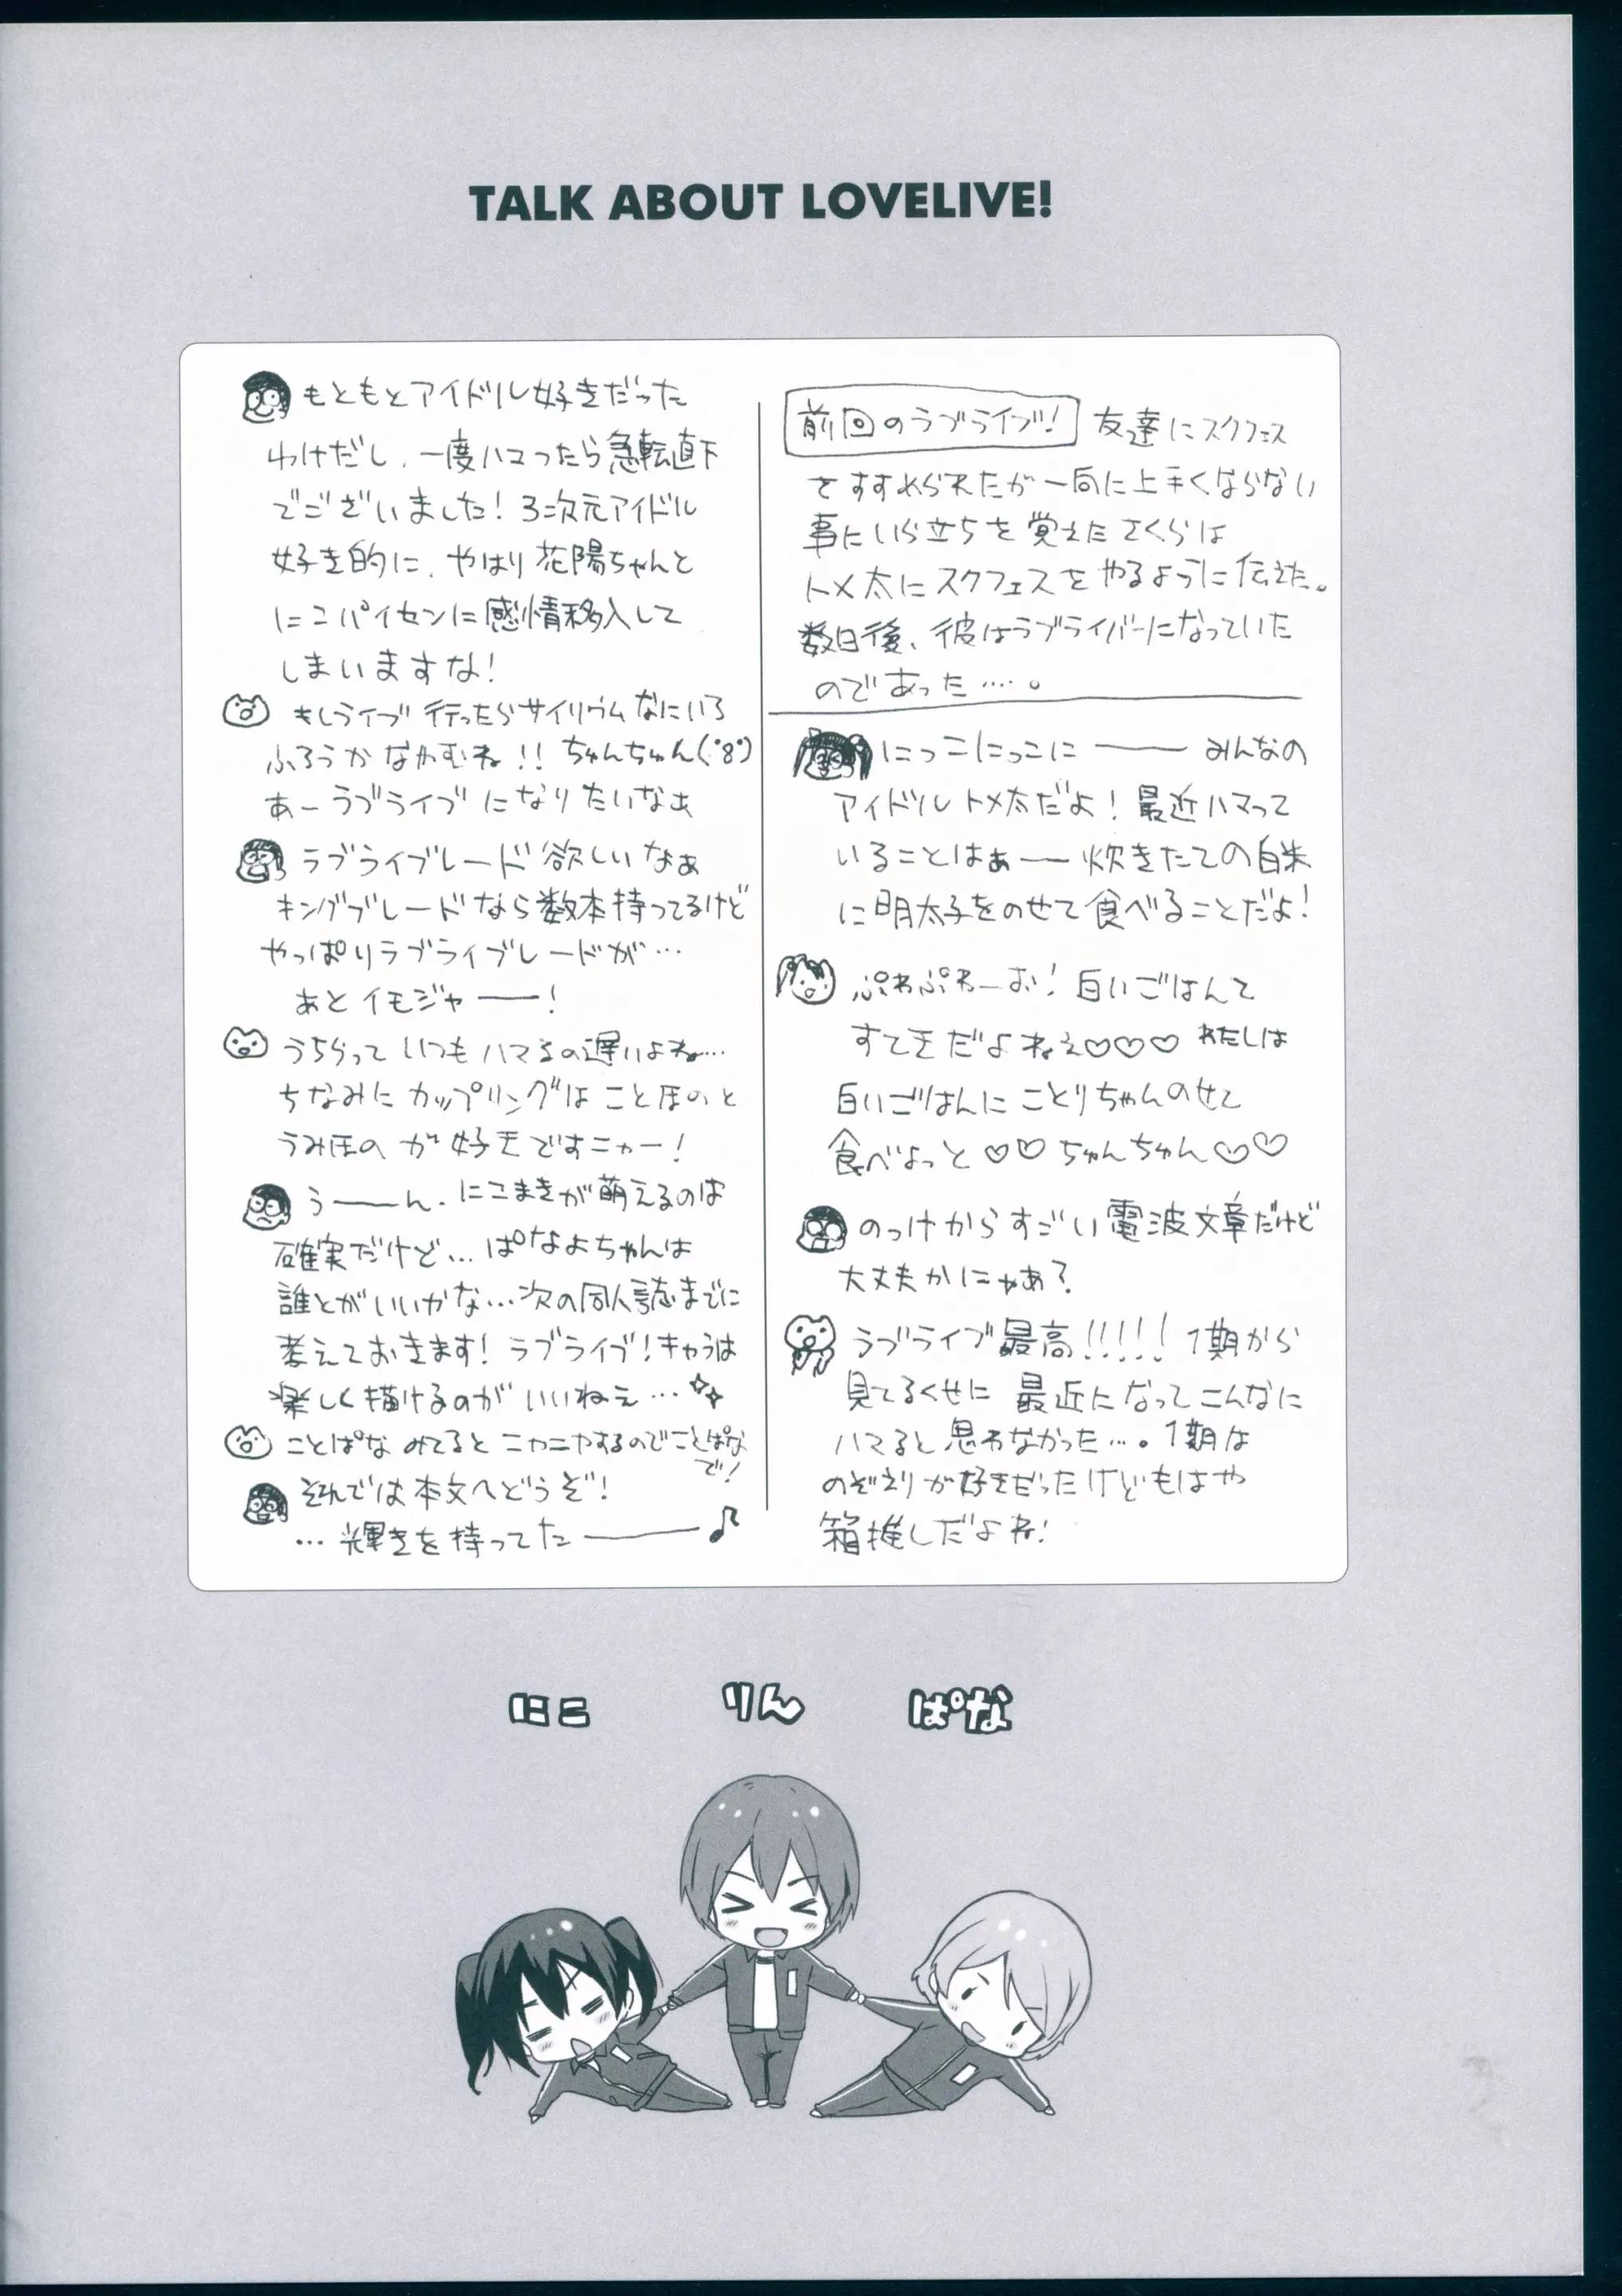 TALK ABOUT LOVELIVE!
前回のラブライブ! 友達にスクフェス
をすすめられたが一向に上手くならない
事にいら立ちを覚えたさくらは
トメ太にスクフェスをやるように伝えた。
数日後、彼はラブライバーになっていた
のであった…。
にっこにっこに―― みんなの
アイドルトメ太だよ!最近ハマって
いることはぁ――炊きたての白米
に明太子をのせて食べることだよ!
ぷわぷわーお!白いごはんて
すてきだよねぇ♡♡♡ わたしは
白いごはんにことりちゃんのせて
食べよっと♡♡ちゅんちゅん♡♡
のっけからすごい電波文章だけど
大丈夫かにゃあ?
ラブライブ最高!!!!! 1期から
見てるくせに 最近になってこんなに
ハマると思わなかった…。1期は
のぞえりが好きだったけどもはや
箱推しだよね!
もともとアイドル好きだった
わけだし、一度ハマったら急転直下
でございました!3次元アイドル
好き的に、やはり花陽ちゃんと
にこパイセンに感情移入して
しまいますな!
もしライブ行ったらサイリウムなにいろ
ふろうかなかむね!!ちゅんちゅん(・8・)
あーラブライブになりたいなぁ
ラブライブレード欲しいなぁ
キングブレードなら数本持ってるけど
やっぱりラブライブレードが…
あとイモジャ――!
うちらっていつもハマるの遅いよね…
ちなみにカップリングはことほのと
うみほのが好きですニャー!
う――ん、にこまきが萌えるのは
確実だけど…ぱなよちゃんは
誰とがいいかな…次の同人誌までに
考えておきます!ラブライブ!キャラは
楽しく描けるのがいいねぇ…
ことぱなみてるとニヤニヤするのでことぱな
で!
それでは本文へどうぞ!
…輝きを待ってた――♪
にこ りん ぱな